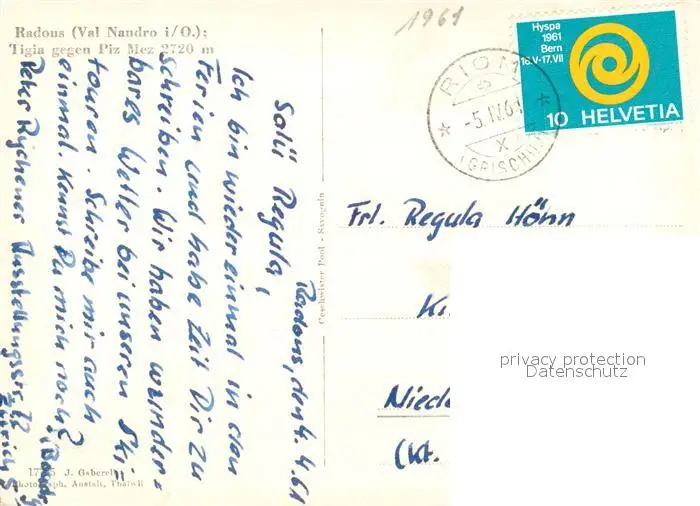 Radous (Val Nandro i/O.);
Tigia gegen Piz Mez 2720 m
1961
Hyspa
1961
Bern
18.V-17.VII
10 HELVETIA
RIOM
-5.IV.61
X
(GRISCHUN)
Radons, den 4.4.61
Salü Regula,
Ich bin wieder einmal in den
Ferien und habe Zeit Dir zu
schreiben. Wir haben wunder=
bares Wetter bei unseren Ski=
touren. Schreibe mir auch
einmal. Kennst Du mich noch?
Peter Rychener Ausstellungsstr.
Zürich 5
Geschwister Pool - Savognin
Frl. Regula Hönn
Niede
(Kt.
privacy protection
Datenschutz
J. Gaberell
Photograph. Anstalt, Thalwil